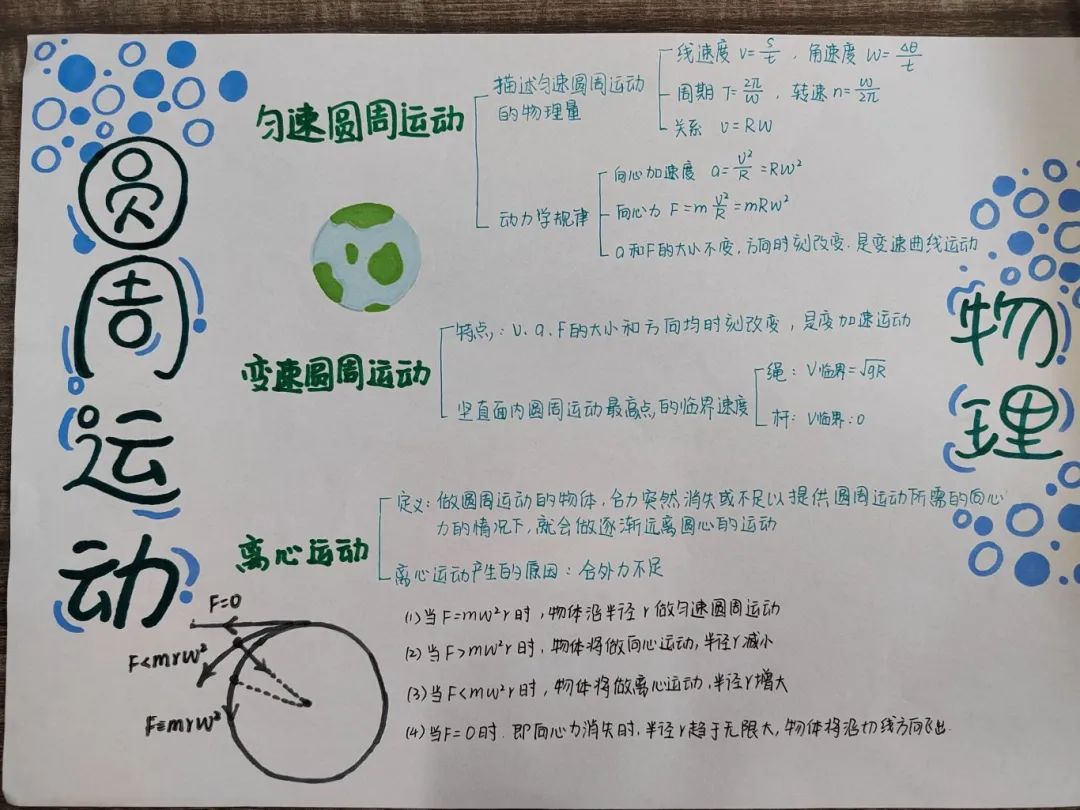 圆周运动
物理
匀速圆周运动
描述匀速圆周运动
的物理量
线速度 V=s/t , 角速度 W=Δθ/t
周期 T=2π/W , 转速 n=W/2π
关系 V=RW
动力学规律
向心加速度 a=V²/R=RW²
向心力 F=mV²/R=mRW²
a和F的大小不变,方向时刻改变.是变速曲线运动
变速圆周运动
特点:V、a、F的大小和方向均时刻改变,是变加速运动
竖直面内圆周运动最高点的临界速度
绳:V临界=√gR
杆:V临界:0
离心运动
定义:做圆周运动的物体,合力突然消失或不足以提供圆周运动所需的向心
力的情况下,就会做逐渐远离圆心的运动
离心运动产生的原因:合外力不足
F=0
F<mrW²
F=mrW²
(1)当F=mW²r时,物体沿半径r做匀速圆周运动
(2)当F>mW²r时,物体将做向心运动,半径r减小
(3)当F<mW²r时,物体将做离心运动,半径r增大
(4)当F=0时.即向心力消失时,半径r趋于无限大,物体将沿切线方向飞出.